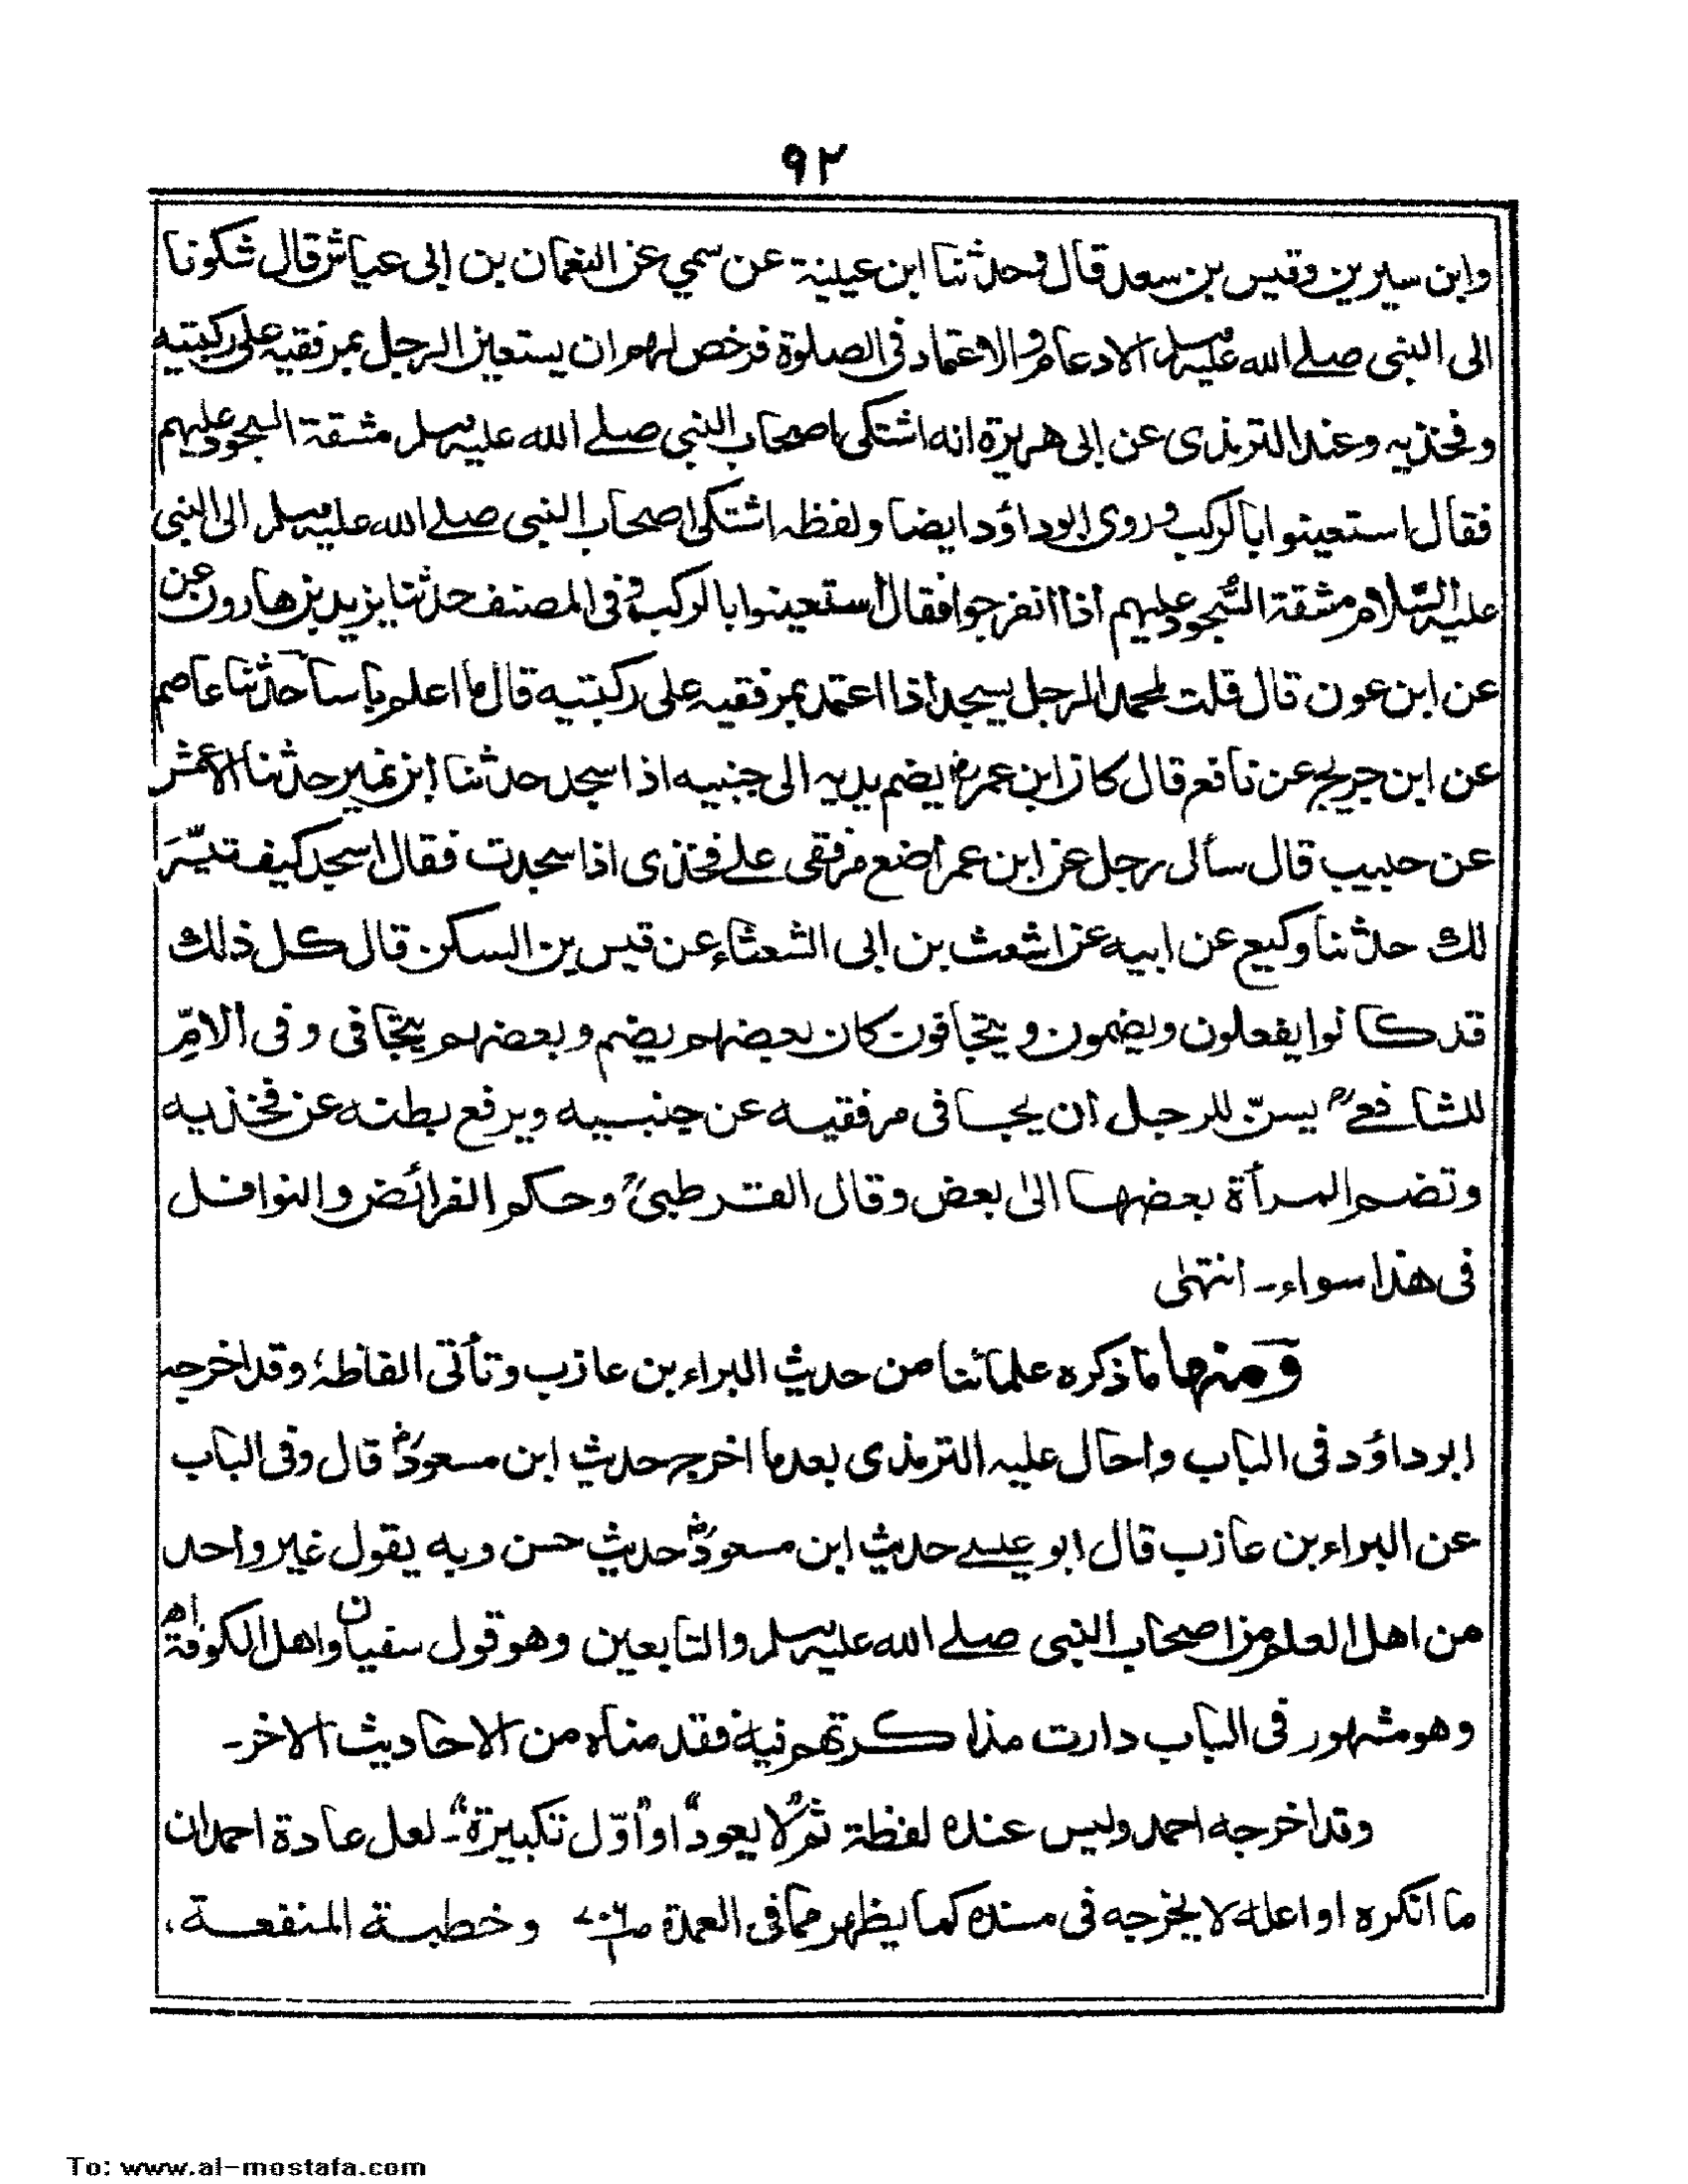 ٩٢
وابن سيرين وقيس بن سعد قال وحدثنا ابن عيينة عن سمي عن النعمان بن ابى عياش قال شكونا
الى النبى صلے الله عليه وسلم الادعام والاعتماد فى الصلوة فرخص لهم ان يستعين الرجل بمرفقيه على ركبتيه
وفخذيه وعند الترمذى عن ابى هريرة انه اشتكى اصحاب النبي صلے الله عليه وسلم مشقة السجود عليهم
فقال استعينوا بالركب وروى ابوداؤد ايضا ولفظه اشتكى اصحاب النبى صلے الله عليه وسلم الى النبى
عليه السّلام مشقة السُّجود عليهم اذا انفرجوا فقال استعينوا بالركب وفى المصنف حدثنا يزيد بن هارون عن
عن ابن عون قال قلت لمحمد الرجل يسجد اذا اعتمد بمرفقيه على ركبتيه قال ما اعلم باسا حدثنا عاصم
عن ابن جريج عن نافع قال كان ابن عمرؓ يضم يديه الى جنبيه اذا سجد حدثنا ابن نمير حدثنا الاعمش
عن حبيب قال سألى رجل عن ابن عمر اضع مرفقى علے فخذى اذا سجدت فقال اسجد كيف تيسّرَ
لك حدثنا وكيع عن ابيه عن اشعث بن ابى الشعثاء عن قيس بن السكن قال كل ذلك
قد كانوا يفعلون ويضمون ويتجافون كان بعضهم يضم وبعضهم يتجافى وفى الامّ
للشافعےؒ يسنّ للرجل ان يجافى مرفقيه عن جنبيه ويرفع بطنه عن فخذيه
وتضم المرأة بعضها الى بعض وقال القرطبىؒ وحكم الفرائض والنوافل
فى هذا سواء ـ انتهى
ومنها ما ذكره علمائنا من حديث البراء بن عازب وتأتى الفاظهٗ وقد اخرجه
ابوداؤد فى الباب واحال عليه الترمذى بعد ما اخرج حديث ابن مسعودؓ قال وفى الباب
عن البراء بن عازب قال ابو عيسے حديث ابن مسعودؓ حديث حسن وبه يقول غير واحد
من اهل العلم من اصحاب النبى صلے الله عليه وسلم والتابعين وهو قول سفيان واهل الكوفة، اھ
وهو مشهور فى الباب دارت مذاكرتهم فيه فقدمناه من الاحاديث الاخر ـ
وقد اخرجه احمد وليس عنده لفظة "ثم لا يعود" او "اوّل تكبيرة" ـ لعل عادة احمد ان
ما انكره او اعله لا يخرجه فى مسنده كما يظهر مما فى العمدة وخطبة المنفعة،
To: www.al-mostafa.com